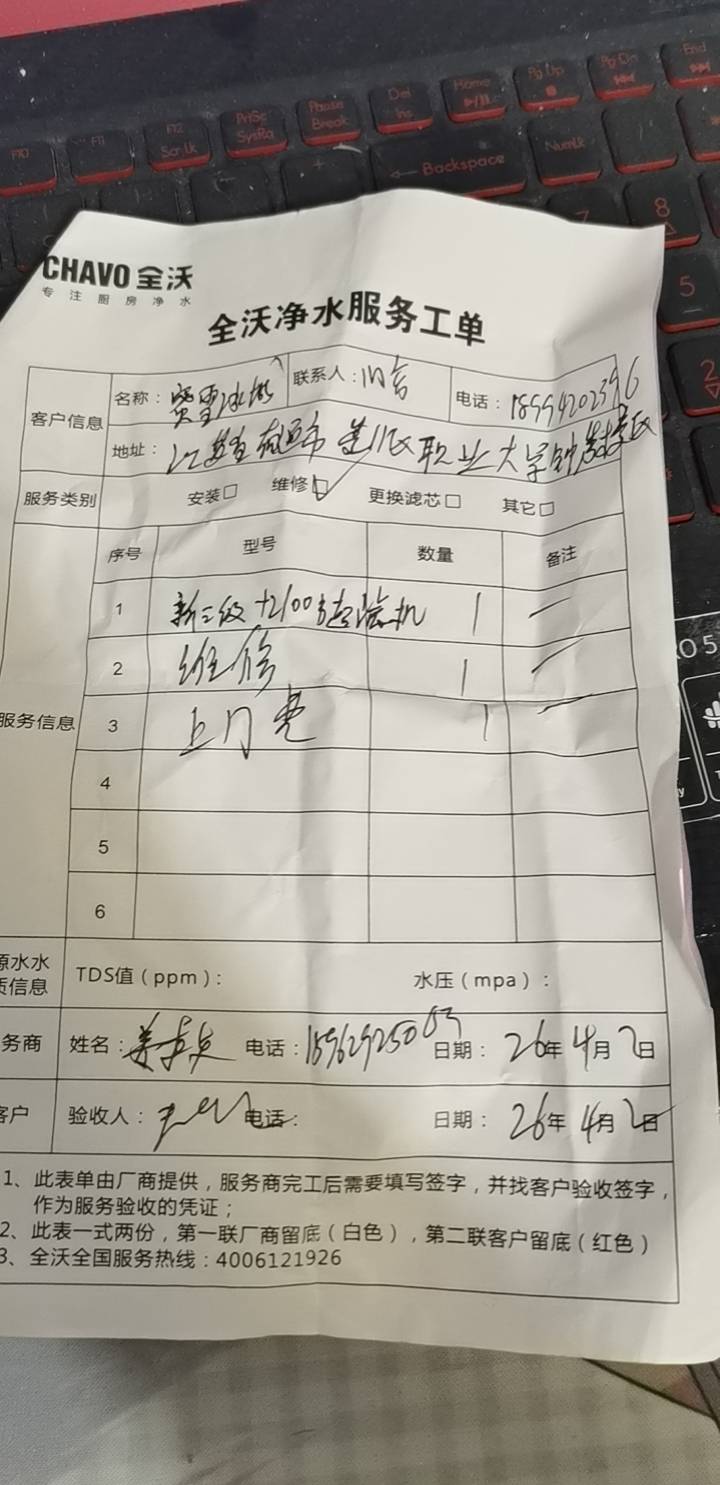 F10 F11 F12 Scr Lk PrtSc SysRq Pause Break Del Ins Home Pg Up Pg Dn End
Backspace NumLk
7 8
5
2
CHAVO 全沃
专注厨房净水
全沃净水服务工单
客户信息 名称： 雪冰 联系人： 电话：
地址：江苏省南通市 职业大学钟秀校区
服务类别 安装□ 维修☑ 更换滤芯□ 其它□
服务信息 序号 型号 数量 备注
1 新三级+2100 机 1
2 维修 1
3 上门费 1
4
5
6
源水水质信息 TDS值（ppm）： 水压（mpa）：
务商 姓名： 电话：15962925003 日期：26年4月2日
客户 验收人： 电话： 日期：26年4月2日
1、此表单由厂商提供，服务商完工后需要填写签字，并找客户验收签字，
作为服务验收的凭证；
2、此表一式两份，第一联厂商留底（白色），第二联客户留底（红色）
3、全沃全国服务热线：4006121926